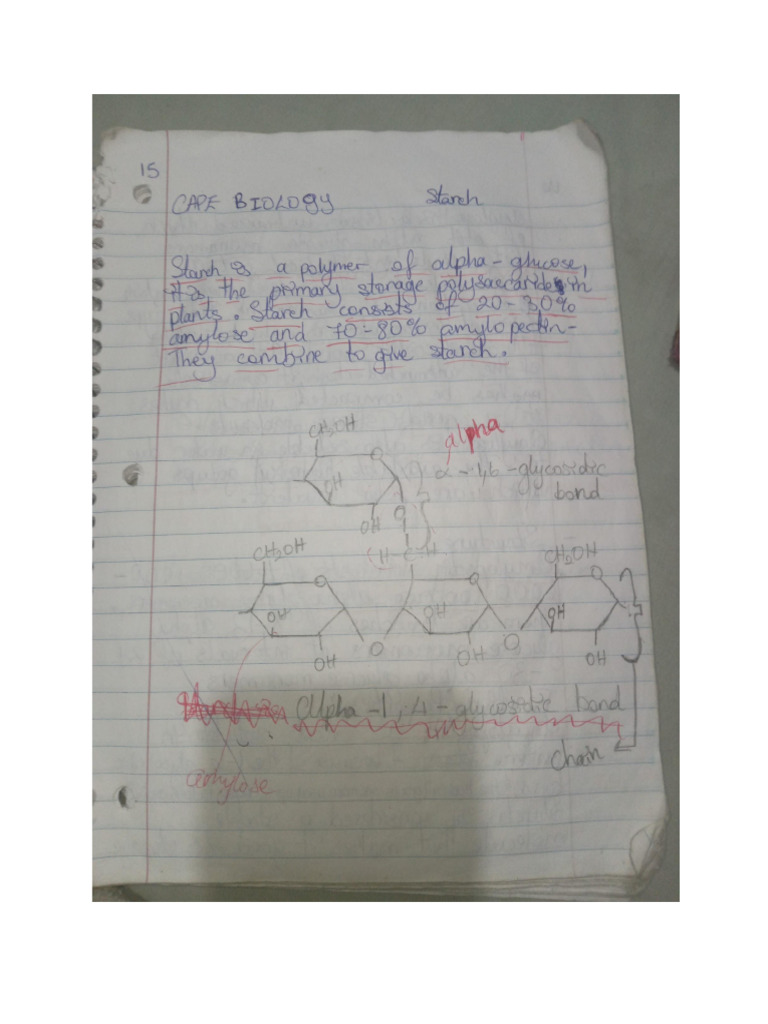 15
CAPE BIOLOGY Starch
Starch is a polymer of alpha-glucose,
it is the primary storage polysaccaride in
plants. Starch consists of 20-30%
amylose and 70-80% amylopectin-
They combine to give starch.
CH2OH
alpha
O
α-1,6-glycosidic
OH
bond
OH
O
CH2OH
H-C-H
CH2OH
O
O
O
OH
OH
OH
OH
O
OH
O
OH
Alpha-1,4-glycosidic bond
Chain
amylose